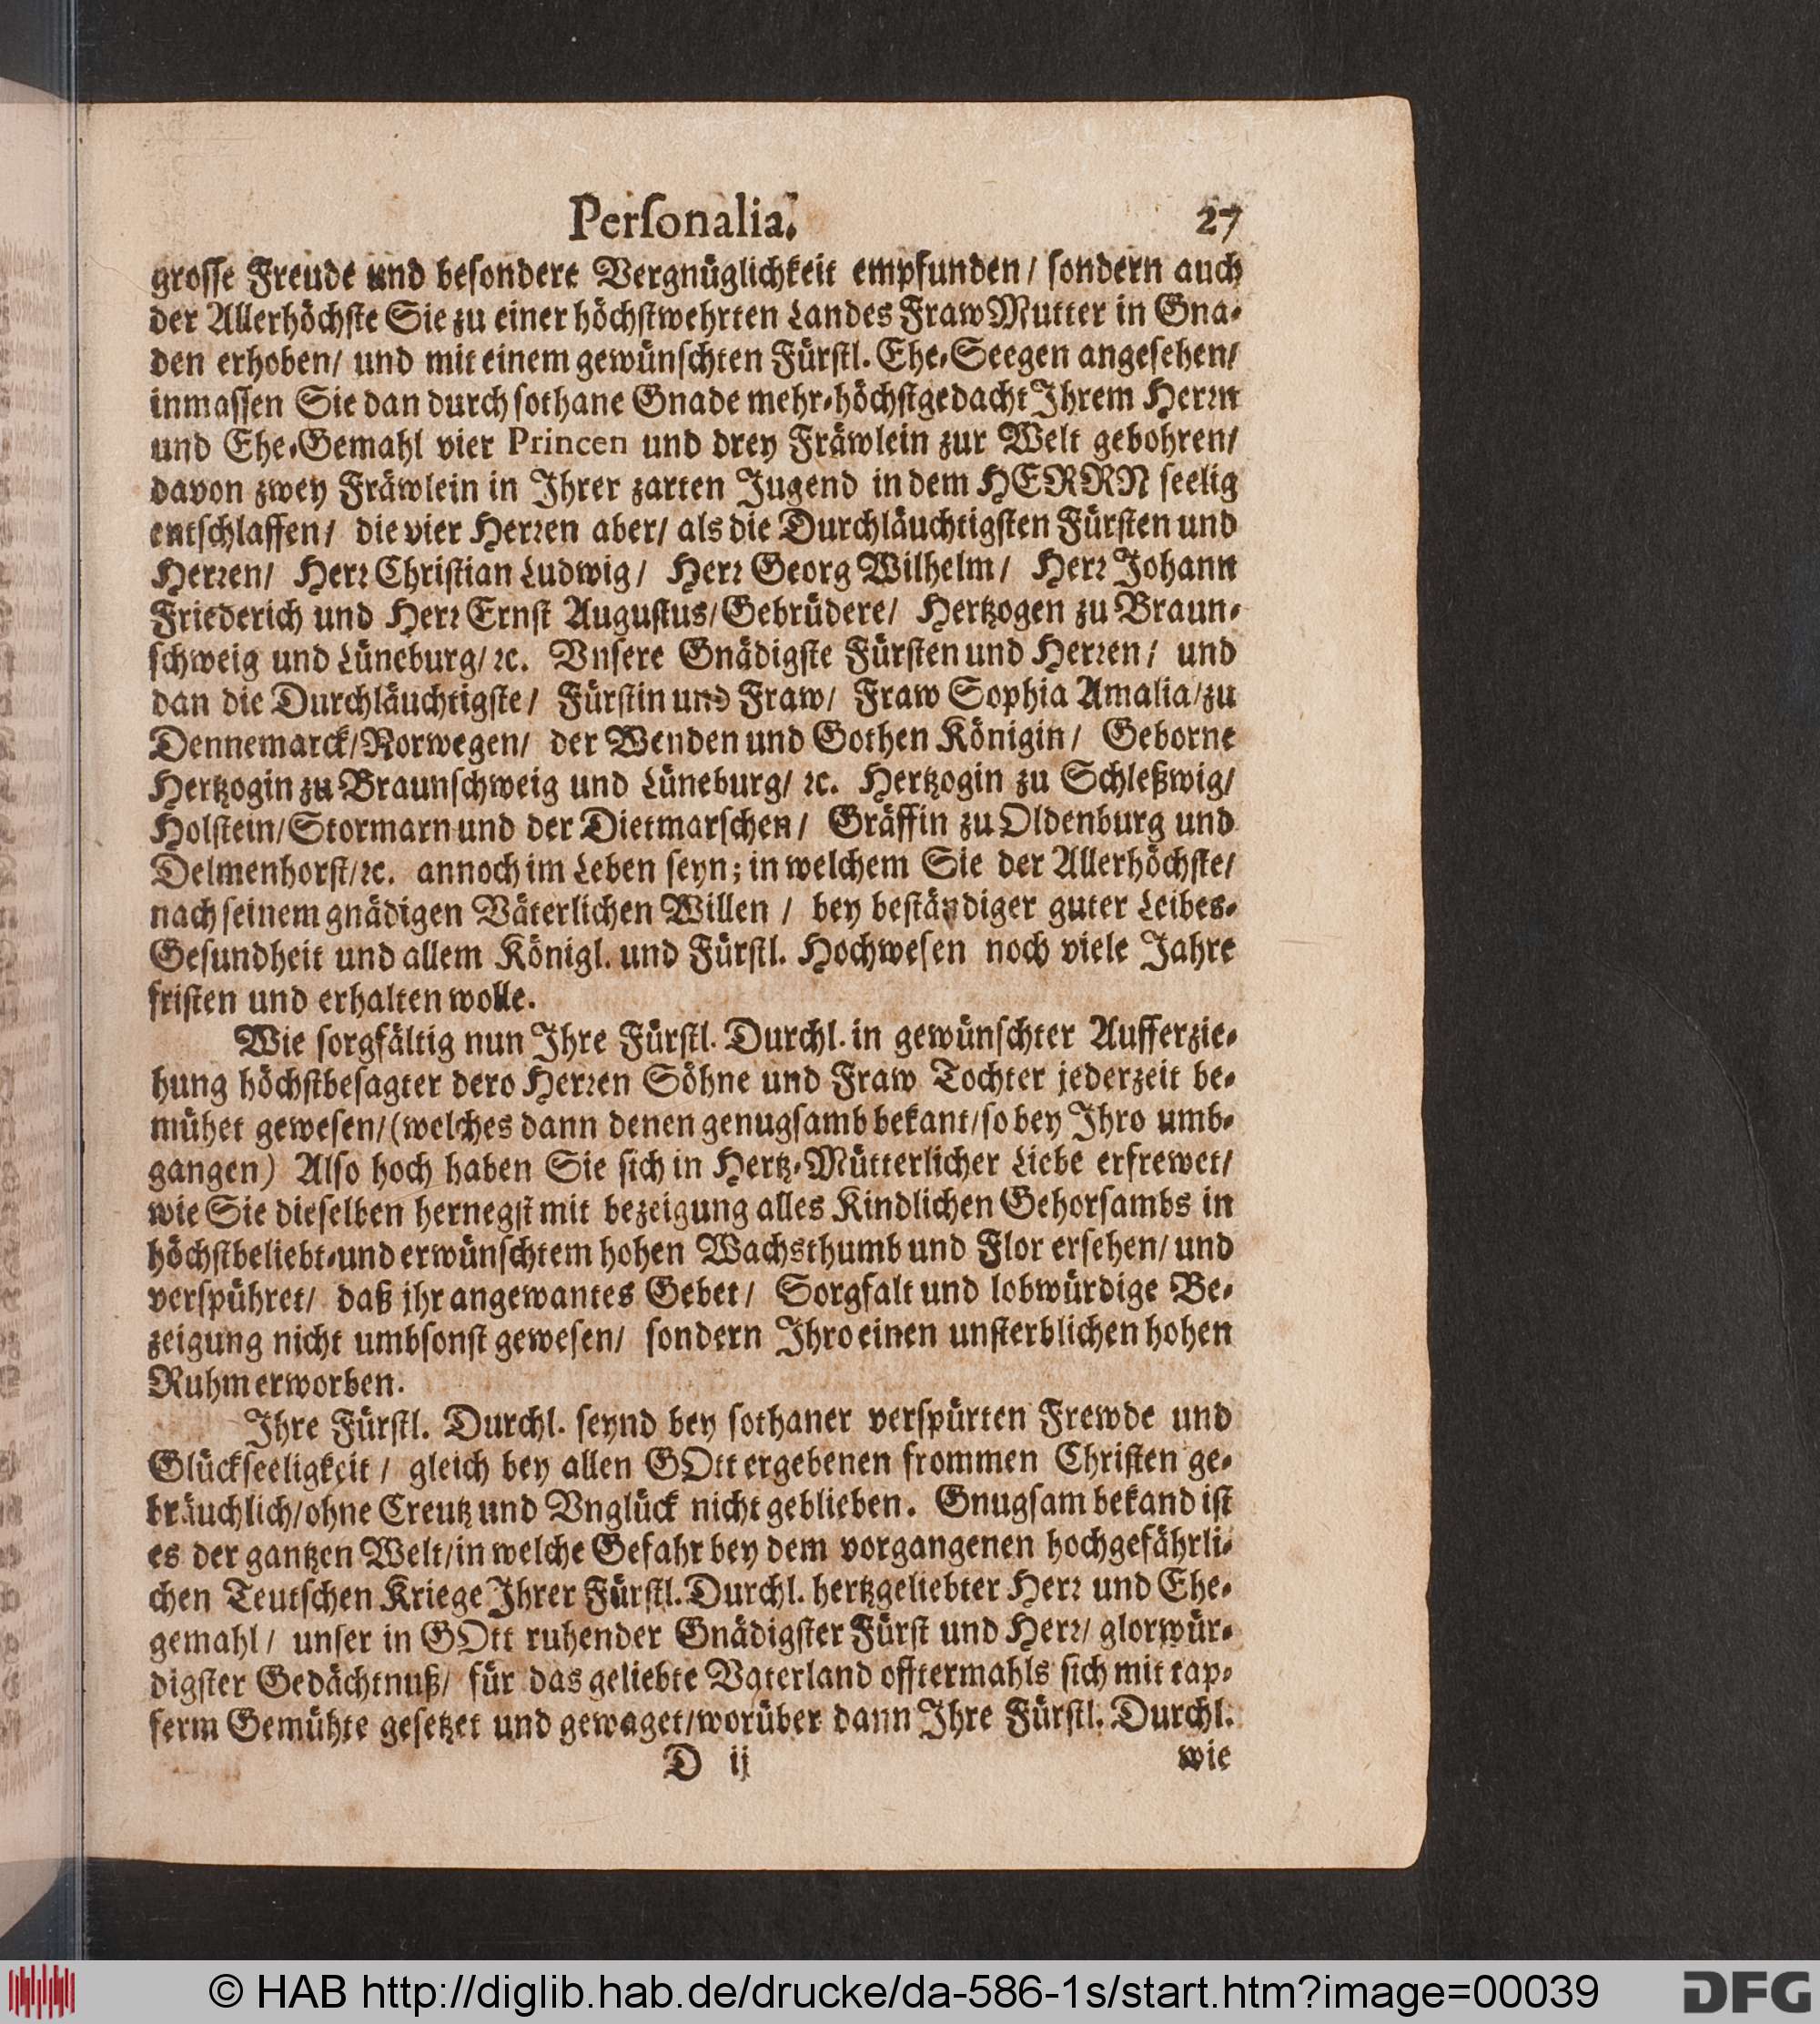 Perſonalia. 27
groſſe Freude und beſondere Vergnüglichkeit empfunden/ ſondern auch
der Allerhöchſte Sie zu einer höchſtwehrten Landes Fraw Mutter in Gna-
den erhoben/ und mit einem gewünſchten Fürſtl. Ehe-Seegen angeſehen/
inmaſſen Sie dan durch ſothane Gnade mehr-höchſtgedacht Ihrem Herꝛn
und Ehe-Gemahl vier Princen und drey Fräwlein zur Welt gebohren/
davon zwey Fräwlein in Ihrer zarten Jugend in dem HERRN ſeelig
entſchlaffen/ die vier Herꝛen aber/ als die Durchläuchtigſten Fürſten und
Herꝛen/ Herꝛ Chriſtian Ludwig/ Herꝛ Georg Wilhelm/ Herꝛ Johann
Friederich und Herꝛ Ernſt Auguſtus/ Gebrüdere/ Hertzogen zu Braun-
ſchweig und Lüneburg/ ꝛc. Vnſere Gnädigſte Fürſten und Herꝛen/ und
dan die Durchläuchtigſte/ Fürſtin und Fraw/ Fraw Sophia Amalia/ zu
Dennemarck/ Norwegen/ der Wenden und Gothen Königin/ Geborne
Hertzogin zu Braunſchweig und Lüneburg/ ꝛc. Hertzogin zu Schleßwig/
Holſtein/ Stormarn und der Dietmarſchen/ Gräffin zu Oldenburg und
Delmenhorſt/ ꝛc. annoch im Leben ſeyn; in welchem Sie der Allerhöchſte/
nach ſeinem gnädigen Väterlichen Willen / bey beſtändiger guter Leibes-
Geſundheit und allem Königl. und Fürſtl. Hochweſen noch viele Jahre
friſten und erhalten wolle.
Wie ſorgfältig nun Ihre Fürſtl. Durchl. in gewünſchter Aufferzie-
hung höchſtbeſagter dero Herꝛen Söhne und Fraw Tochter jederzeit be-
mühet geweſen/ (welches dann denen genugſamb bekant/ ſo bey Ihro umb-
gangen) Alſo hoch haben Sie ſich in Hertz-Mütterlicher Liebe erfrewet/
wie Sie dieſelben hernegſt mit bezeigung alles Kindlichen Gehorſambs in
höchſtbeliebt-und erwünſchtem hohen Wachsthumb und Flor erſehen/ und
verſpühret/ daß jhr angewantes Gebet/ Sorgfalt und lobwürdige Be-
zeigung nicht umbſonſt geweſen/ ſondern Ihro einen unſterblichen hohen
Ruhm erworben.
Ihre Fürſtl. Durchl. ſeynd bey ſothaner verſpürten Frewde und
Glückſeeligkeit / gleich bey allen GOtt ergebenen frommen Chriſten ge-
bräuchlich/ ohne Creutz und Vnglück nicht geblieben. Gnugſam bekand iſt
es der gantzen Welt/ in welche Gefahr bey dem vorgangenen hochgefährli-
chen Teutſchen Kriege Ihrer Fürſtl. Durchl. hertzgeliebter Herꝛ und Ehe-
gemahl/ unſer in GOtt ruhender Gnädigſter Fürſt und Herꝛ/ glorwür-
digſter Gedächtnuß/ für das geliebte Vaterland offtermahls ſich mit tap-
ferm Gemühte geſetzet und gewaget/ worüber dann Ihre Fürſtl. Durchl.
D ij wie
© HAB http://diglib.hab.de/drucke/da-586-1s/start.htm?image=00039 DFG